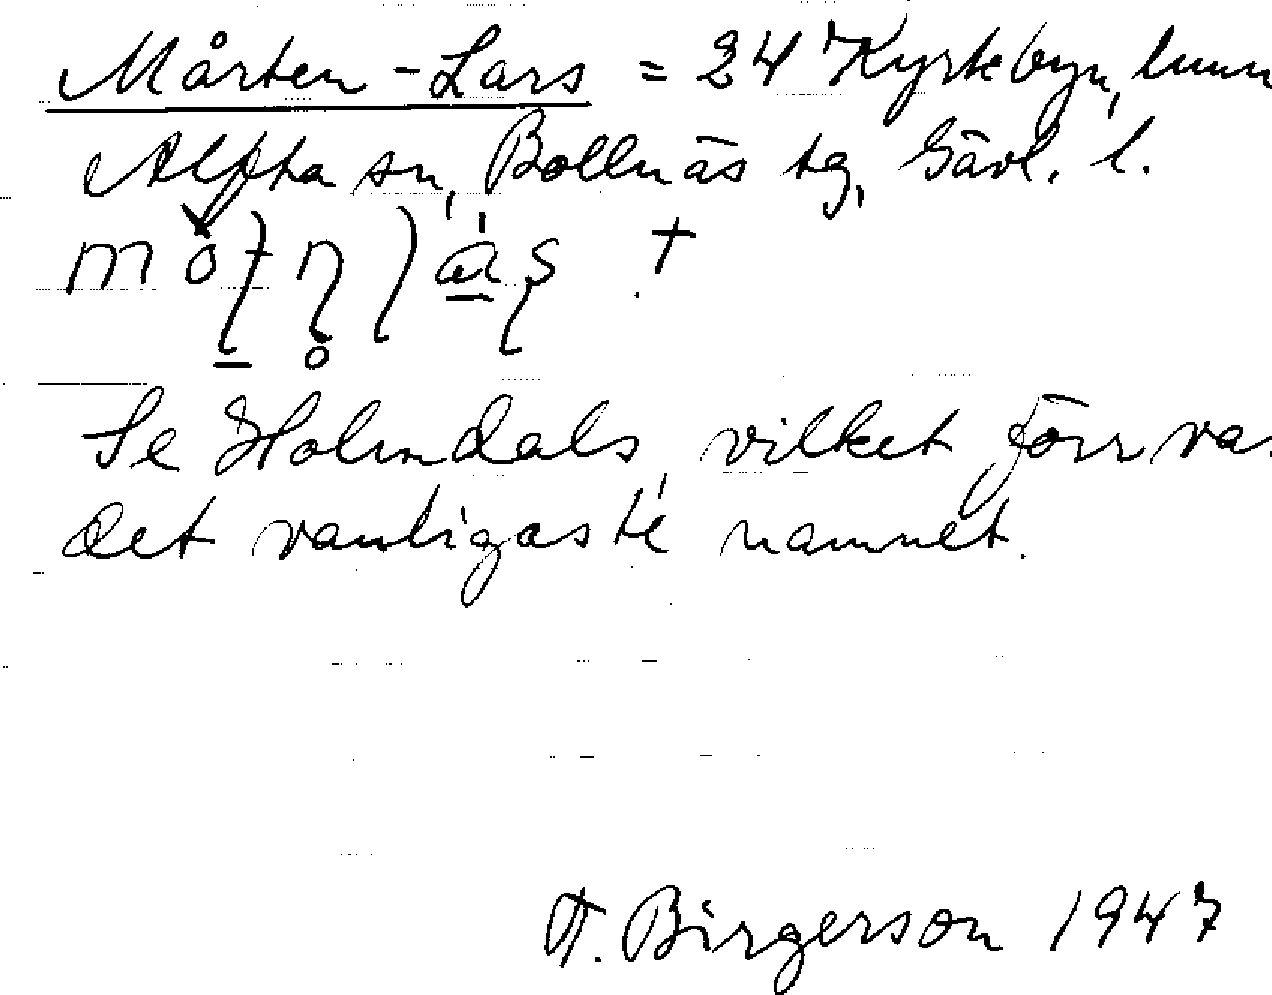 Mårten-Lars = 24 Kyrkbyn,
Alfta sn, Bollnäs tg, Gävl. l.
Se Holmdals, vilket förr va
det vanligaste namnet.
T. Birgerson 1947